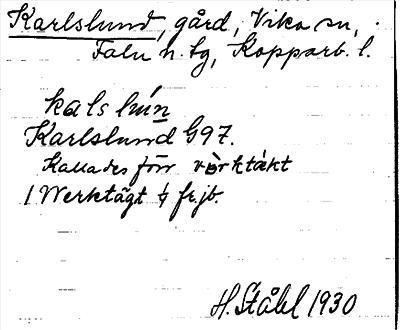 Karlslund, gård, Vika sn,
Falu n. tg, Kopparb. l.
kals lún
Karlslund G97.
Kallades förr vèrktäkt
1 Werktägt ¼ fr.jb.
H. Ståhl 1930